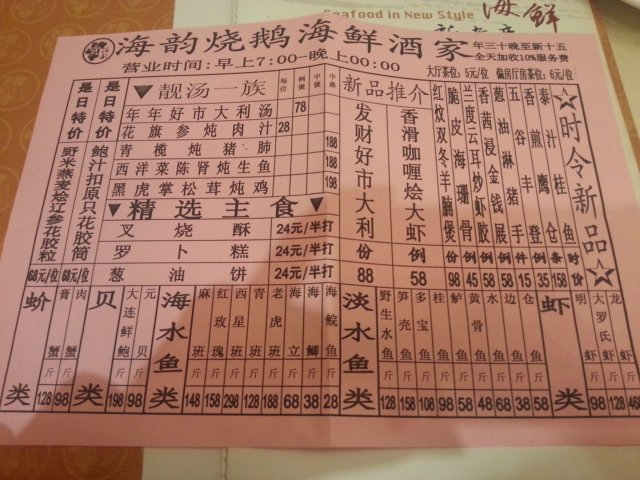 Seafood in New Style
海鲜
海韵烧鹅海鲜酒家
营业时间:早上7:00-晚上00:00
年三十晚至新十五
全天加收10%服务费
大厅茶位:5元/位 偏房厅房茶位:6元/位
是日特价
野米燕麦烩辽参花胶粒
68元/位
是日特价
鲍汁扣原只花胶筒
68元/位
▼靓汤一族
每位
例煲
中煲
中鼎
年年好市大利汤 78
花旗参炖肉汁 28
青榄炖猪肺 188
西洋菜陈肾炖生鱼 188
黑虎掌松茸炖鸡 198
▼精选主食▼
叉烧酥 24元/半打
罗卜糕 24元/半打
葱油饼 24元/半打
新品推介
发财好市大利 份 88
香滑咖喱烩大虾 例 58
红炆双冬羊腩煲 份 98
脆皮海珊骨 例 45
兰度云耳炒虾胶 例 58
香茜浸金钱展 例
葱油淋猪手 例
五谷丰登 份
香煎鹰仓 条
泰汁桂鱼
☆时令新品☆
时价
蚧类
膏蟹 斤 128
肉蟹 斤 98
贝类
大连鲜鲍 斤 198
元贝 斤 98
海水鱼类
麻班 斤 148
红玫瑰 斤 158
西星班 斤 298
青班 斤 128
老虎班 斤 188
海立 斤 68
海鲫 斤 38
海鲩鱼 斤 28
淡水鱼类
野生水鱼 斤 128
笋壳鱼 斤 158
多宝鱼 斤 108
桂鱼 斤 98
鲈鱼 斤 58
黄骨鱼 斤 48
水鱼 斤 68
边鱼 斤 38
仓鱼 斤 58
虾类
明虾 斤 98
大罗氏虾 斤 128
龙虾 斤